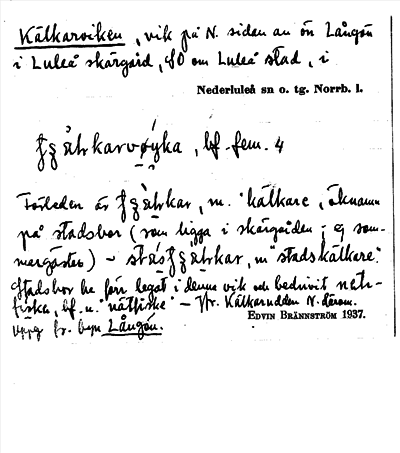 Kälkarviken, vik på N. sidan av ön Långön
i Luleå skärgård, SO om Luleå stad, i
Nederluleå sn o. tg. Norrb. l.
bf. fem. 4
Förleden är m. "kälkare", öknamn
på stadsbor (som ligga i skärgården; ej som-
margäster) - m "stadskälkare".
Stadsbor ha förr legat i denna vik och bedrivit nät-
fiske, bf. n. "nätfiske" - Jfr. Kälkarudden N. därom.
Uppg. fr. byn Långön.
EDVIN BRÄNNSTRÖM 1937.